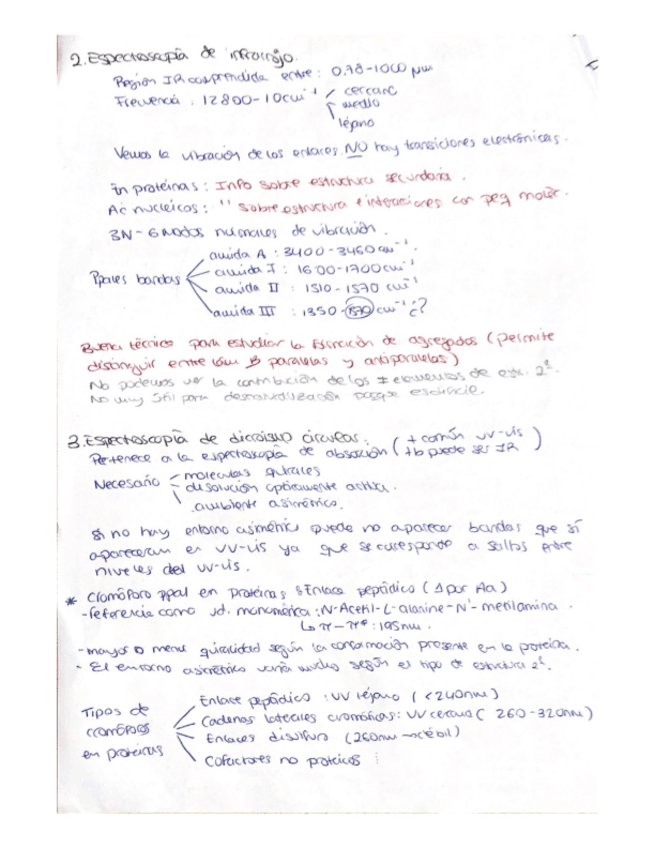 2. Espectroscopía de infrarrojo.
Región IR comprendida entre: 0.78-1000 μm
Frecuencia: 12800-10cm⁻¹ cercano
medio
lejano
Vemos la vibración de los enlaces. NO hay transiciones electrónicas.
En proteínas: Info sobre estructura secundaria.
Ác nucleicos: " sobre estructura e interaciones con peq moléc.
3N-6 modos normales de vibración.
Ppales bandas
amida A: 3400-3460cm⁻¹.
amida I: 1600-1700cm⁻¹
amida II: 1510-1570 cm⁻¹
amida III: 1350-1570cm⁻¹ ¿?
Buena técnica para estudiar la formación de agregados (permite
distinguir entre lám β paralelas y antiparalelas)
No podemos ver la contribución de los ≠ elementos de estr. 2ª.
No muy útil para desnaturalización porque
3. Espectroscopía de dicroismo circular.
Pertenece a la espectroscopía de absorción (+ común UV-vis
tb puede ser IR)
Necesario
moléculas quirales
disolución opticamente activa.
ambiente asimétrico.
Si no hay entorno asimétrico puede no aparecer bandas que sí
aparecerían en UV-vis ya que se corresponde a saltos entre
niveles del UV-vis.
* Cromóforo ppal en proteínas: Enlace peptídico (1 por Aa)
-Referencia como ud. monomérica: N-Acetil-L-alanine-N'-metilamina.
↳ π-π*: 195nm.
-mayor o menor quiralidad según la conformación presente en la proteína.
- El entorno asimétrico varía mucho según el tipo de estructura 2ª.
Tipos de
cromóforos
en proteínas
Enlace peptídico: UV lejano (<240nm)
Cadenas laterales aromáticas: UV cercano (260-320nm)
Enlaces disulfuro (260nm → débil)
Cofactores no proteicos